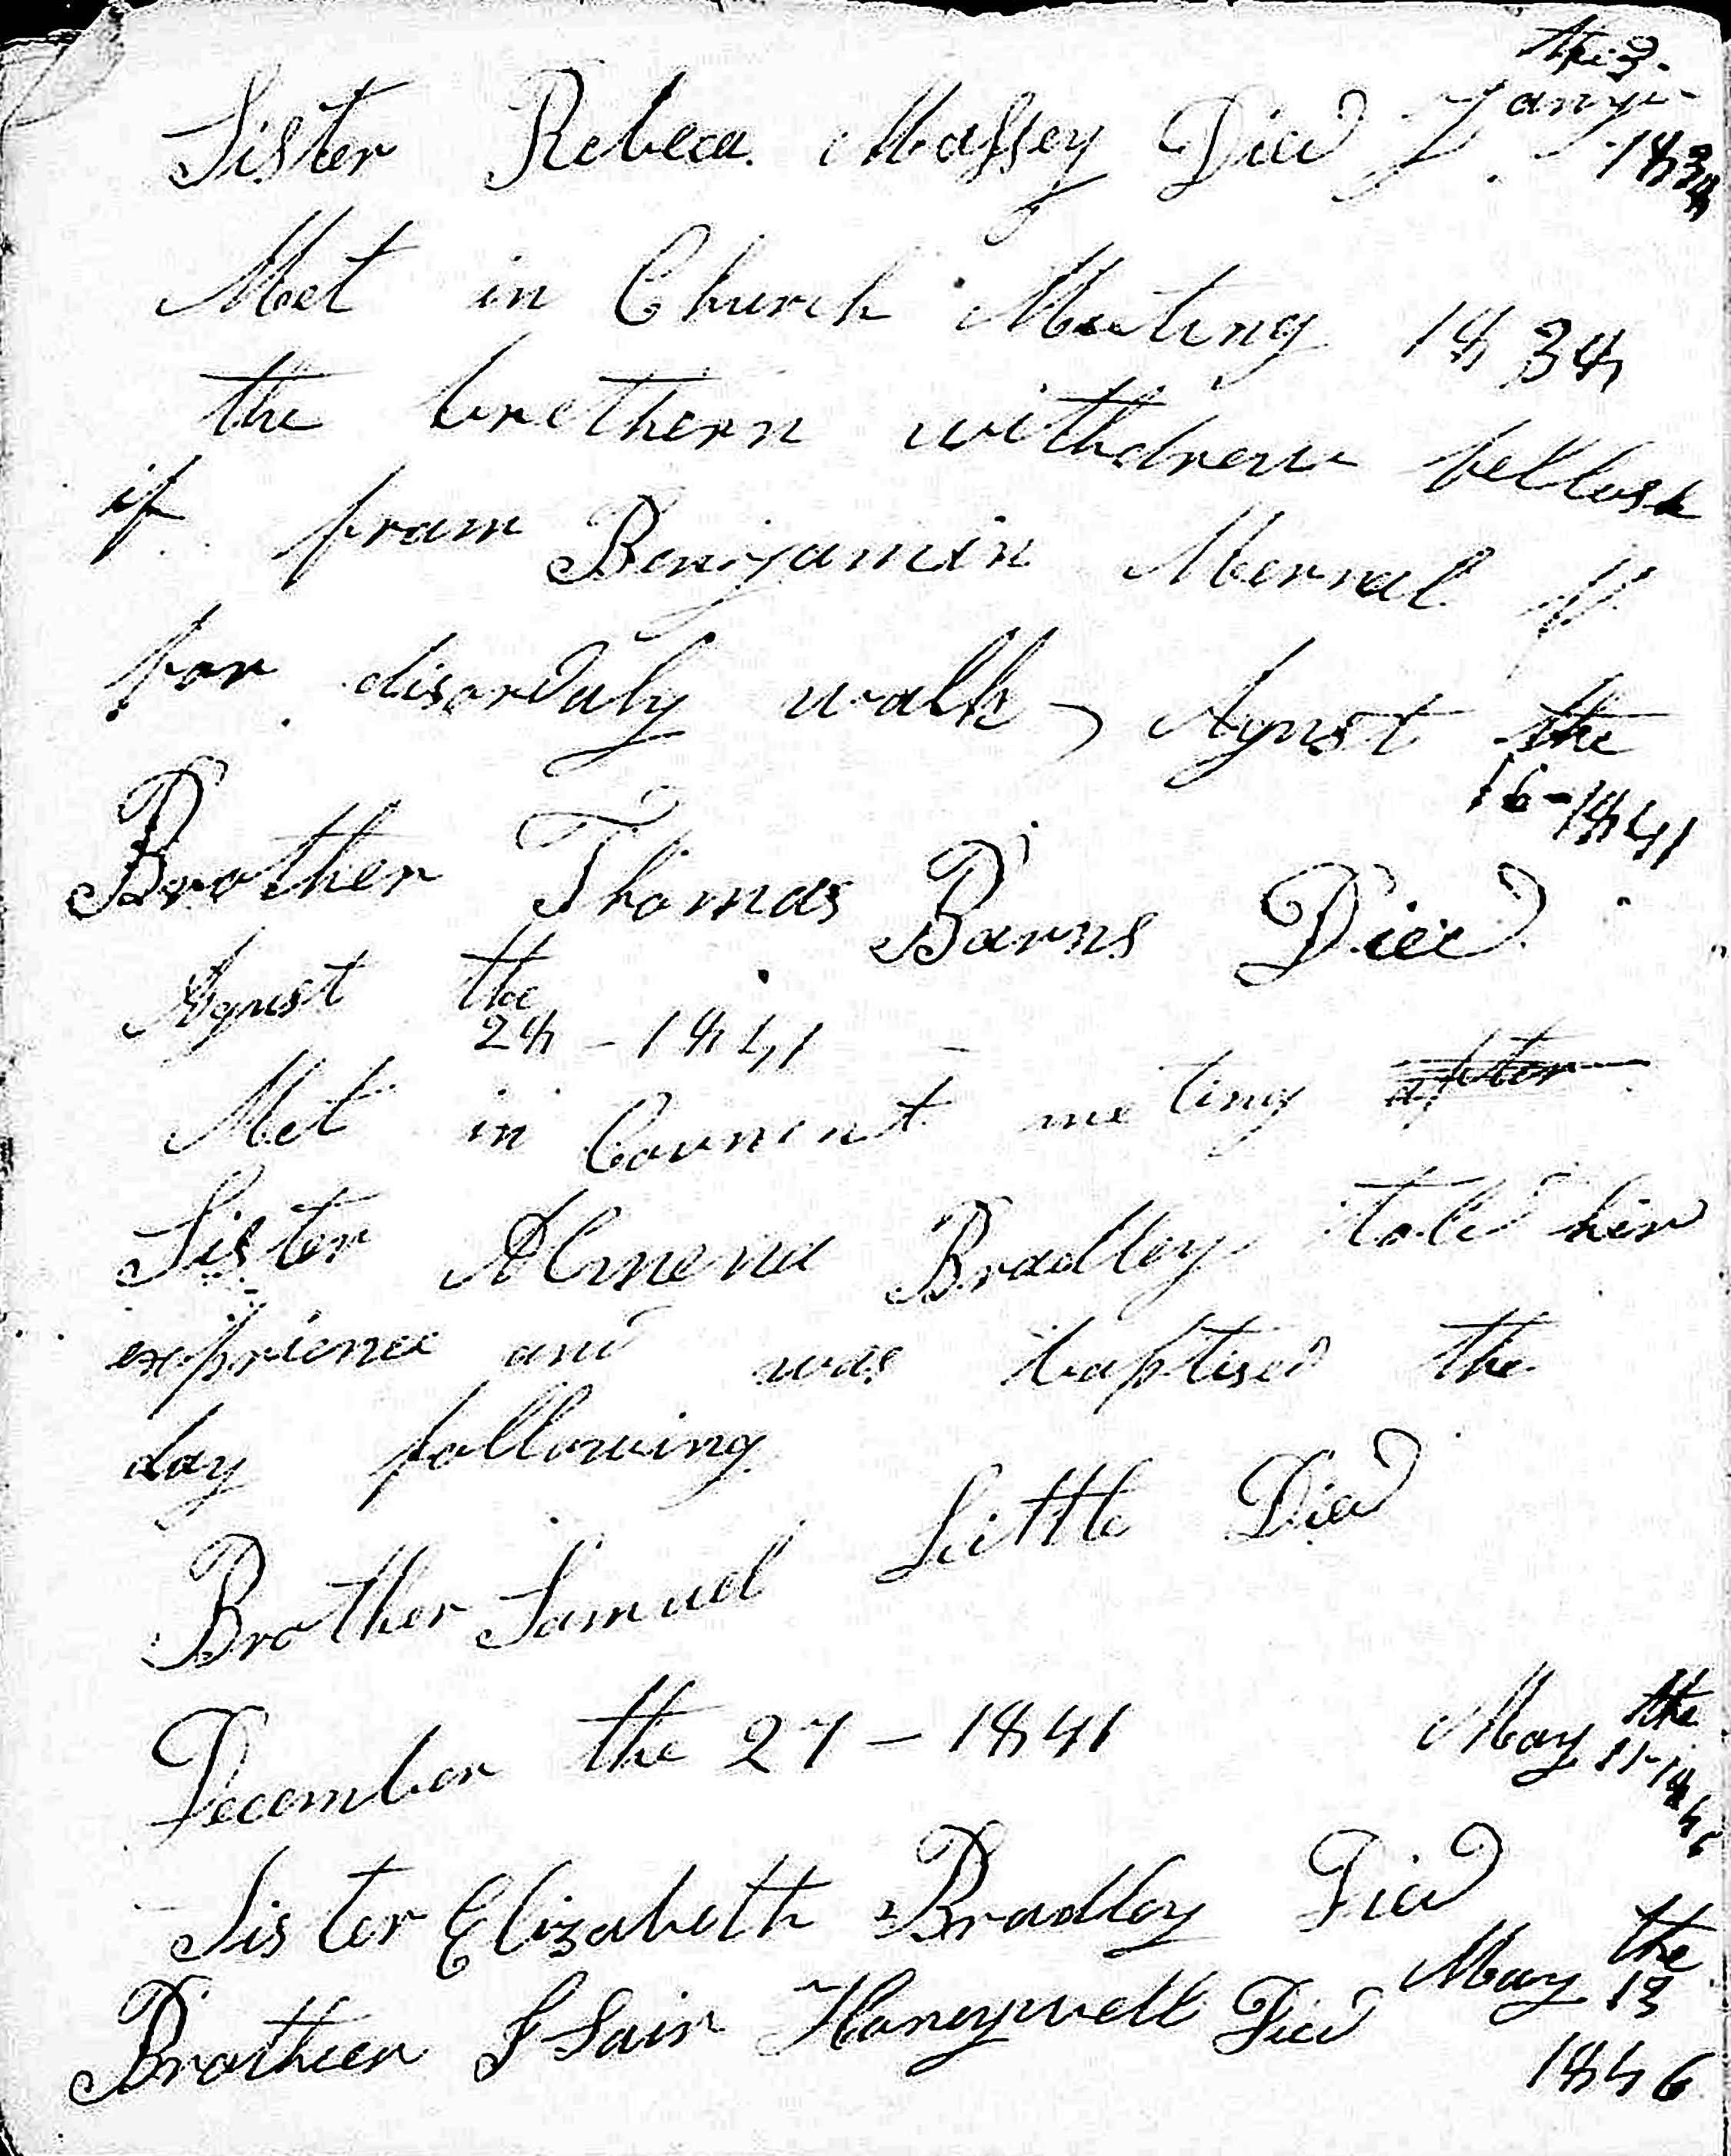 the 3
Sister Rebeca Massey Died Jany
1838
Met in Church Meeting 1838
the brethern withdrew fellosh
if from Benjamin Merrel
for disorduly walk, Agust the
16-1841
Brother Thomas Barns Died
Agust the
28 - 1841
Met in Covnent meting after
Sister Almena Bradley told her
exprience and was baptised the
day following
Brother Samuel Little Died
December the 27 - 1841
May the
11-1846
Sister Elizabeth Bradley Died
Brotheer Honeywell Died May the
13
1846